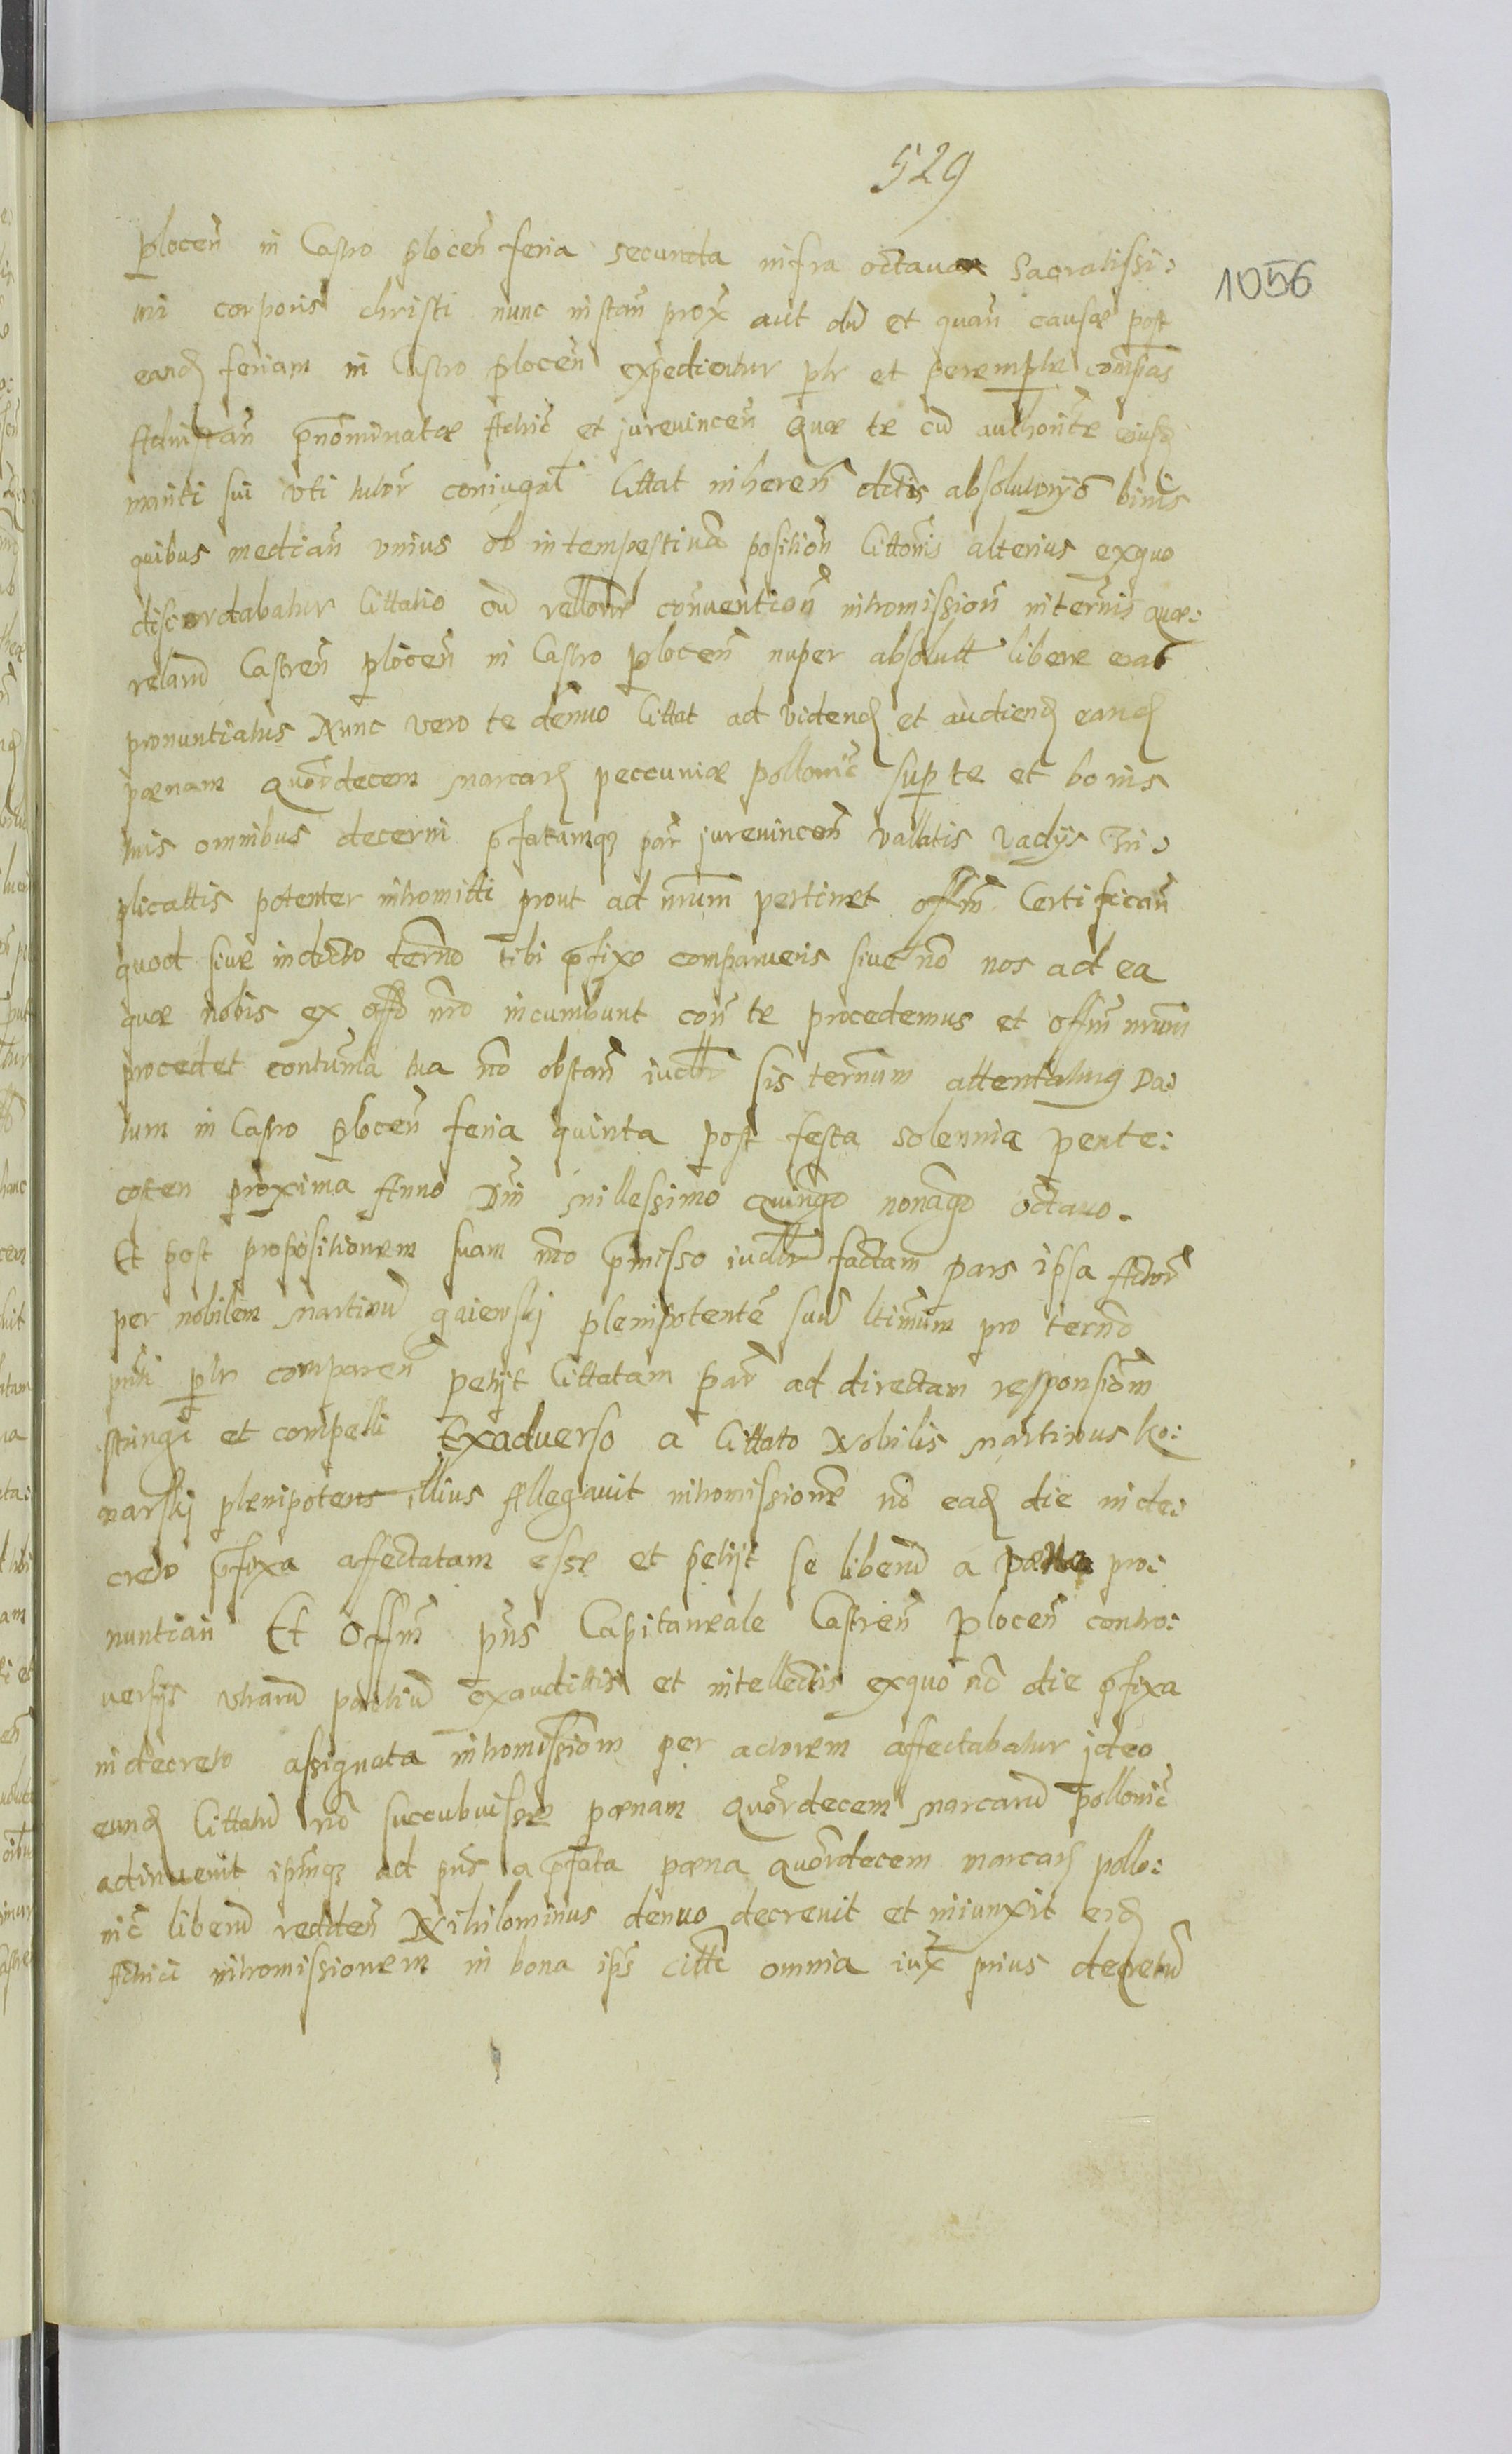 529
1056
plocen in Castro plocen feria secunda infra octauas Sacratissi:
mi corporis christi nunc instan prox aut dū et quan causæ post
eand feriam in Castro plocen expedientur plr et peremptie compas
Ad instan prnominatæ Actric et jureuincen Quæ te cū authoritte eiusd
mariti sui vti tutor coniugal Cittat inheren dctis absolutorijs binis
quibus median vnius ob intempestiuā position Cittonis alterius exquo
discordabatur Cittatio cū rellone conuention intromission in termis quæ:
relarū Castren plocen in Castro plocen nuper absolutt libere eras
pronuntiatus Nunc vero te denuo Cittat ad vidend et audiend eand
pœnam quordecem marcar peccuniæ pollonic super te et bonis
tuis omnibus decerni prfatamq par jureuincen vallatis vadijs Tri:
plicattis potenter intromitti prout ad nrum pertinet offm Certifican
quod siue in dicto termo tibi prfixo comparueris siue nō nos ad ea
quæ nobis ex offo nro incumbunt con te procedemus et offm nrum
procedet contumcia tua nō obstan iudlr sis terminum attentatus Da:
tum in Castro plocen feria quinta post festa solennia pente:
costen proxima Anno Dni millessimo quingo nonago octauo.
Et post propositionem suam mō prmisso iudlr factam pars ipsa Actor
per nobilem martinū gaiewskj plenipotentē suū ltimum pro termo
pnti plr comparen petijt Cittatam par ad directam responsiom
stringi et compelli Exaduerso a Cittato Nobilis martinus Ko:
narskj plenipotens illius Allegauit intromissione nō ead die in de:
creto prfixa affectatam esse et petijt se liberū a pœna pro:
nuntiari Et Offm pns Capitaneale Castren plocen contro:
uersijs vtrarū partiū exaudittis et intellectis exquo nō die prfixa
in decreto assignata intromissiom per actorem affectabatur ideo
eund Cittatū nō succubuisse pœnam quordecem marcarū pollonic
adinuenit ipmq ad pns a prfata pœna quordecem marcar pollo:
nic liberū redden Nihilominus denuo decreuit et iniunxit eid
Actrici intromissionem in bona ips citti omnia iux prius decretū